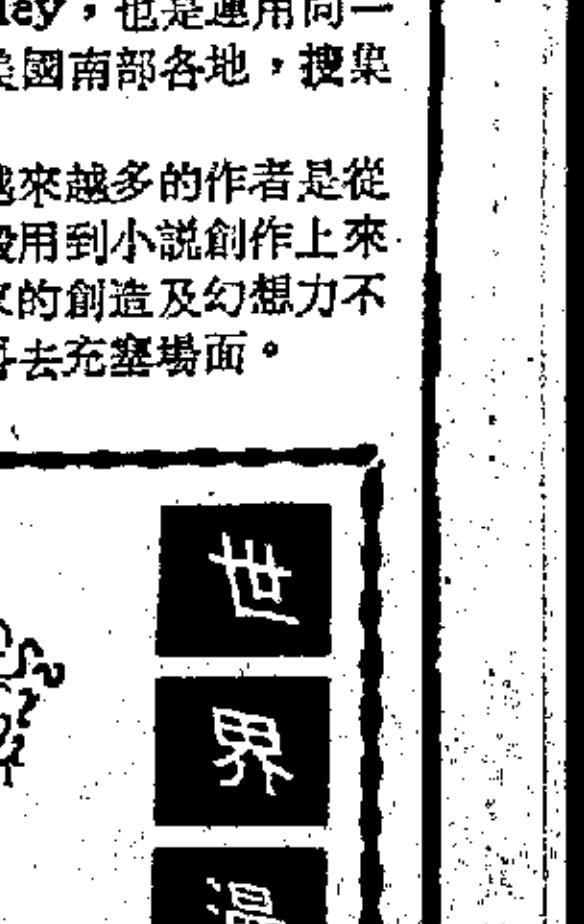 ley，也是運用同一
美國南部各地，搜集
越來越多的作者是從
般用到小説創作上來
的創造及幻想力不
再去充塞場面。
世
界
漫